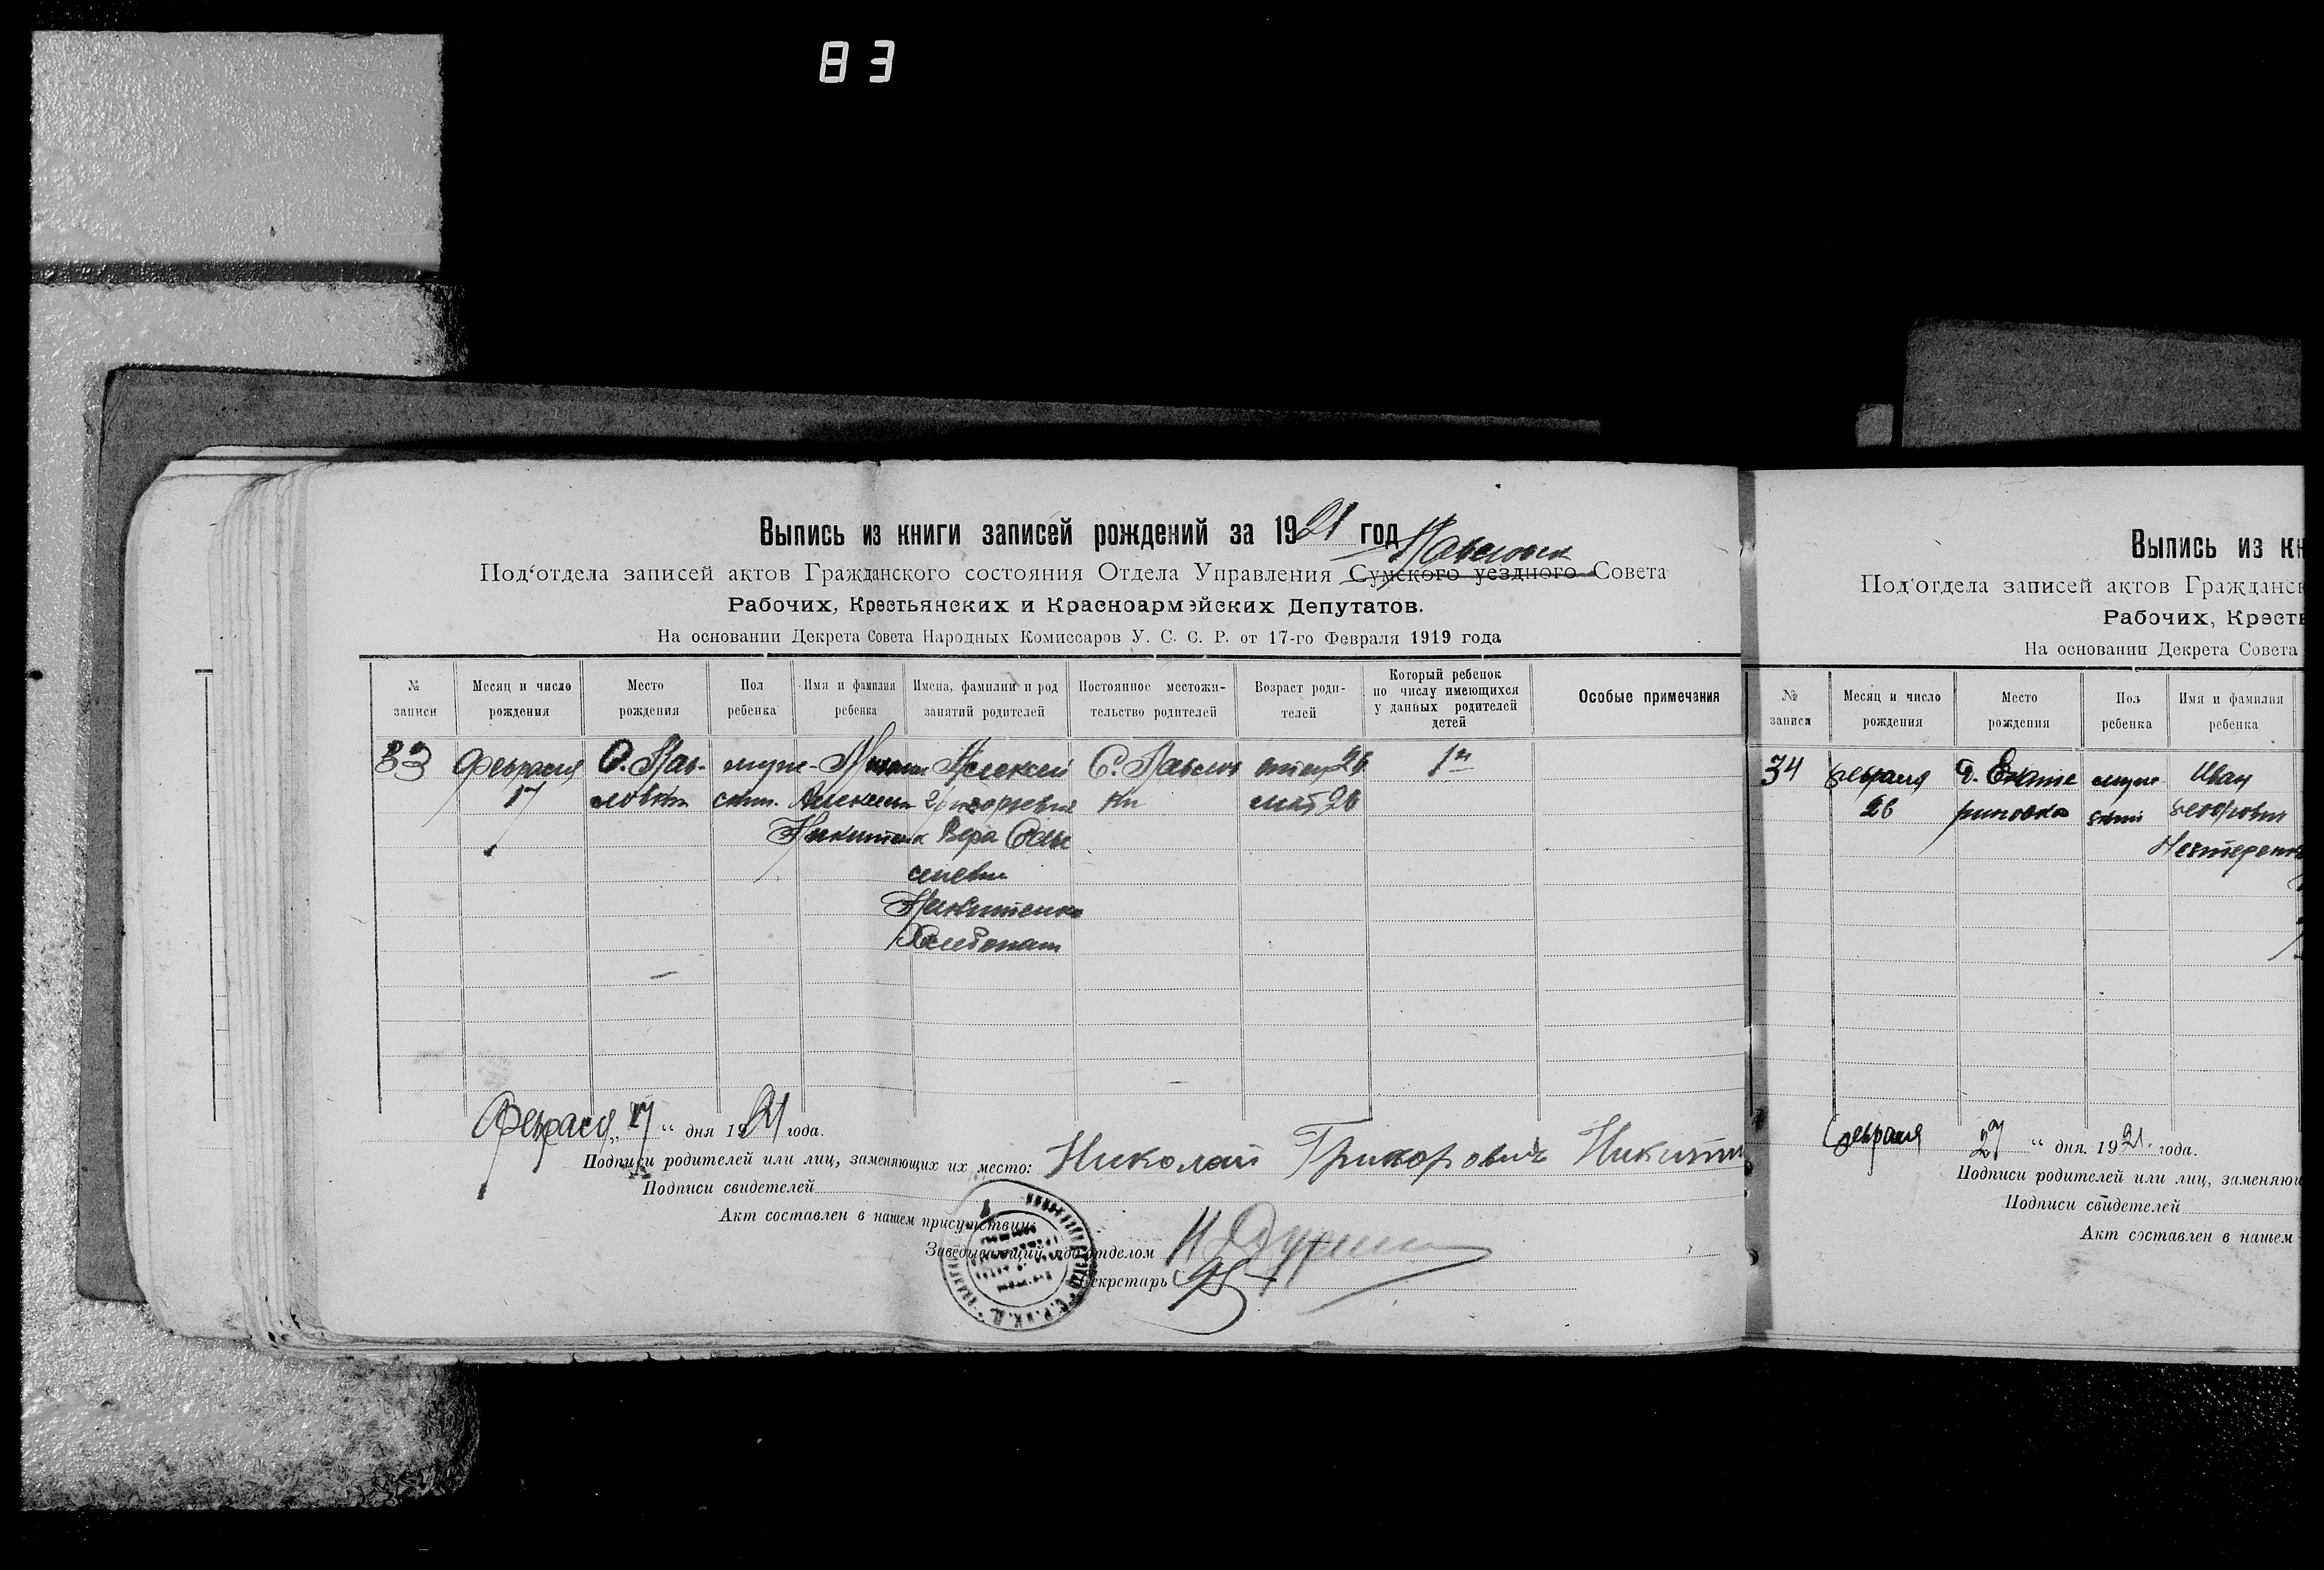 83
Выпись из книги записей рождений за 1921 год
Под‘отдела записей актов Гражданского состояния Отдела Управления Сумского уездного Совета
Рабочих, Крестьянских и Красноармейских Депутатов.
На основании Декрета Совета Народных Комиссаров У. С. С. Р. от 17-го Февраля 1919 года
№ записи
Месяц и число рождения
Место рождения
Пол ребенка
Имя и фамилия ребенка
Имена, фамилии и род занятий родителей
Постоянное местожи-
тельство родителей
Возраст роди-
телей
Который ребенок
по числу имеющихся
у данных родителей
детей
Особые примечания
33 Февраля С. Пав- муж- Алексей С. Павлов отец 26 1й
17 ловки ский. Григорьевич ки мат 26
Вера
Никитенко
Хлебопаш
Февраля „17“ дня 1921 года.
Подписи родителей или лиц, заменяющих их место: Николай Григорович Никитен
Подписи свидетелей
Акт составлен в нашем присутствии:
Заведывающий подотделом
Секретарь
Выпись из кн
Под‘отдела записей актов Гражданск
Рабочих, Кресть
На основании Декрета Совета
№ записи
Месяц и число рождения
Место рождения
Пол ребенка
Имя и фамилия ребенка
34 Февраля Д. Екате муж Иван
26 риновка ский Федорович
Нестеренк
Февраля 27 “ дня 1921. года.
Подписи родителей или лиц, заменяющ
Подписи свидетелей
Акт составлен в нашем